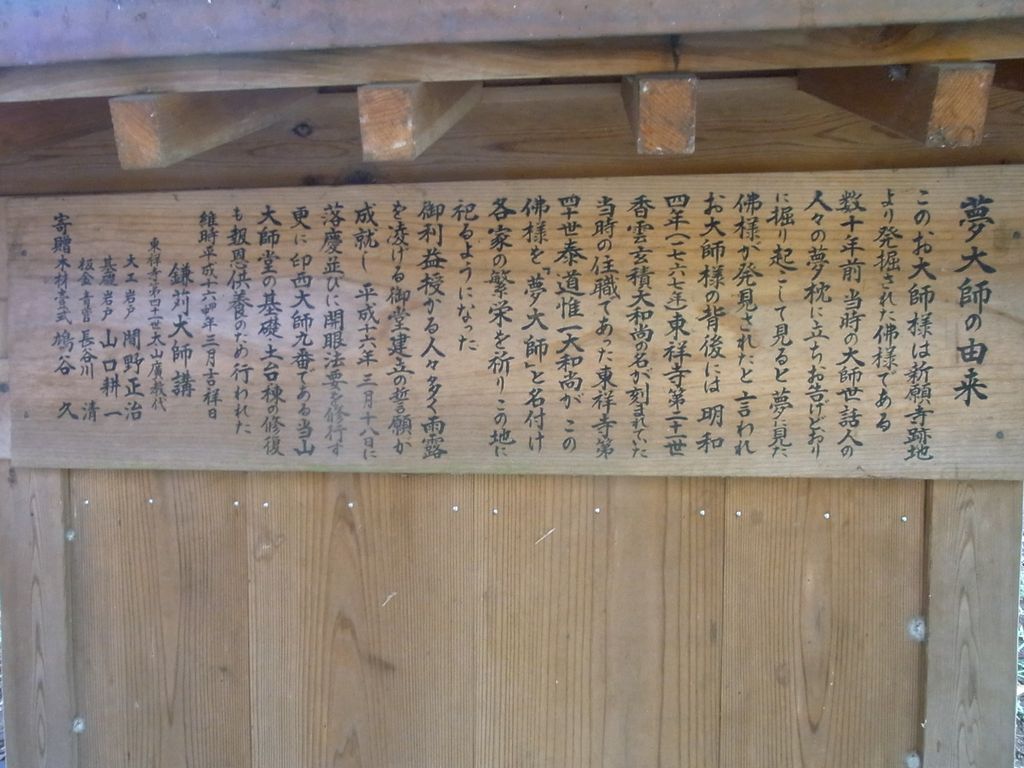 夢大師の由来
このお大師様は祈願寺跡地
より発掘された佛様である
数十年前 当時の大師世話人の
人々の夢枕に立ちお告げどおり
に掘り起こして見ると夢に見た
佛様が発見されたと言われ
お大師様の背後には 明和
四年(一七六七年)東祥寺第二十一世
香雲玄積大和尚の名が刻まれていた
当時の住職であった東祥寺第
四十世泰道惟一大和尚が この
佛様を「夢大師」と名付け
各家の繁栄を祈りこの地に
祀るようになった
御利益授かる人々多く雨露
を凌げる御堂建立の誓願か
成就し 平成十六年 三月十八日に
落慶並びに開眼法要を修行す
更に印西大師九番である当山
大師堂の基礎・土台棟の修復
も報恩供養のため行われた
維時平成十六年 三月吉祥日
鎌苅大師講
東祥寺第四十一世太山廣教代
大工 岩戸 間野正治
基礎 岩戸 山口耕一
板金 長谷川 清
寄贈木材壹式 鳩谷 久